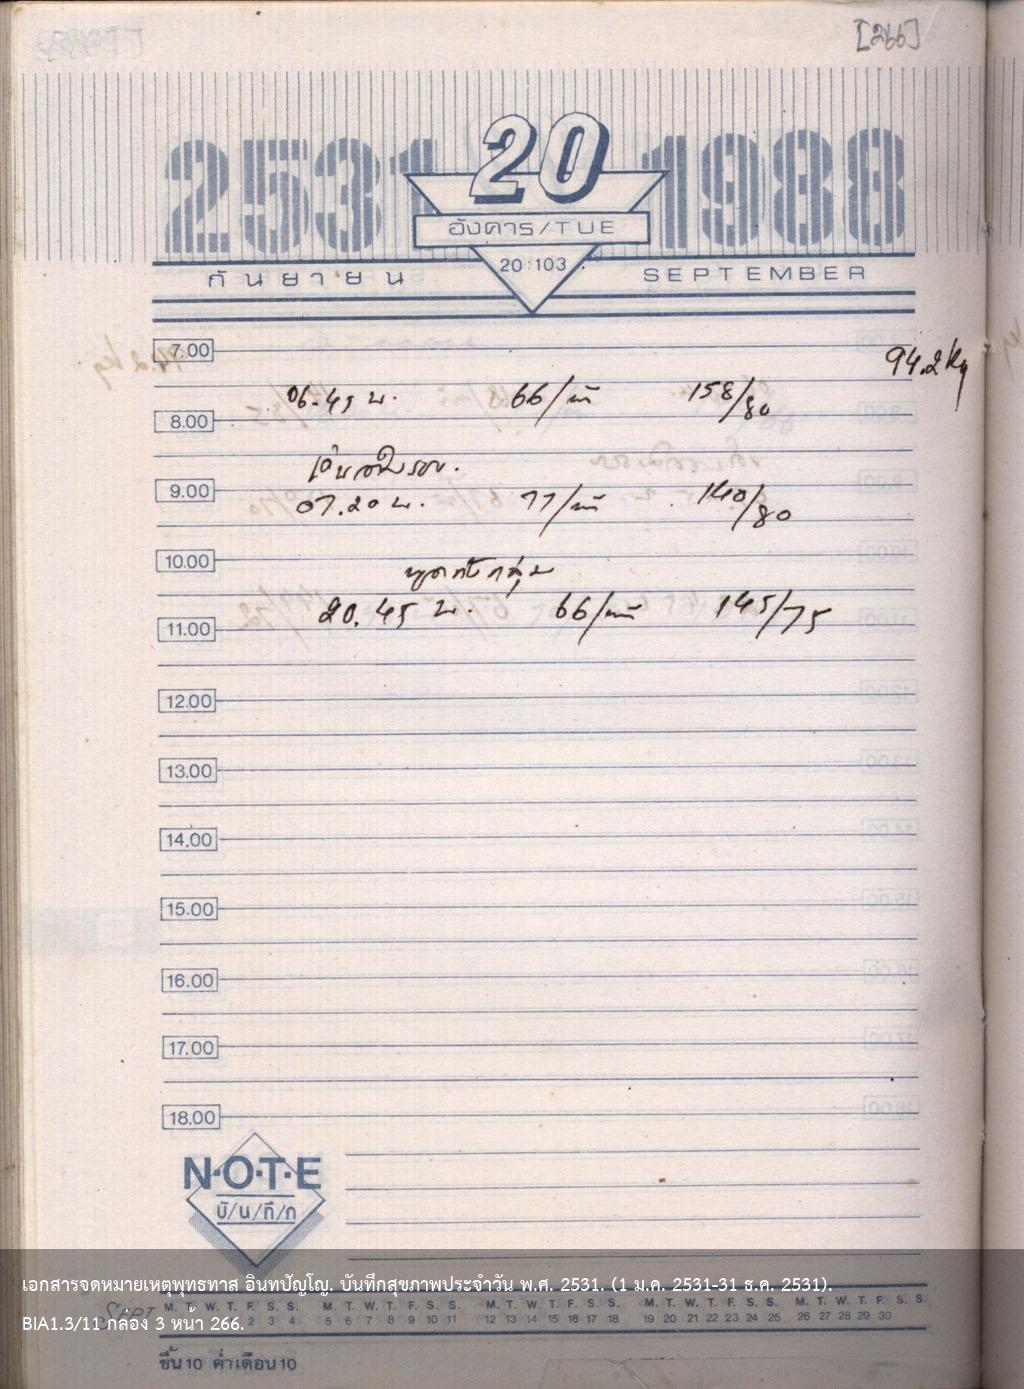 [266]
2531 20 1988
อังคาร/TUE
20:103
กันยายน SEPTEMBER
7.00
94.2 kg
06.45 น. 66/นาที 158/80
8.00
เดิน
9.00
07.20 น. 77/นาที 140/80
10.00
20.45 น. 66/นาที 145/75
11.00
12.00
13.00
14.00
15.00
16.00
17.00
18.00
N·O·T·E
บั/น/ทึ/ก
เอกสารจดหมายเหตุพุทธทาส อินทปัญโญ. บันทึกสุขภาพประจำวัน พ.ศ. 2531. (1 ม.ค. 2531-31 ธ.ค. 2531).
SEPT M. T. W. T. F. S. S. M. T. W. T. F. S. S. M. T. W. T. F. S. S. M. T. W. T. F. S. S. M. T. W. T. F. S. S.
2 3 4 5 6 7 8 9 10 11 12 13 14 15 16 17 18 19 20 21 22 23 24 25 26 27 28 29 30
BIA1.3/11 กล่อง 3 หน้า 266.
ขึ้น 10 ค่ำ เดือน 10